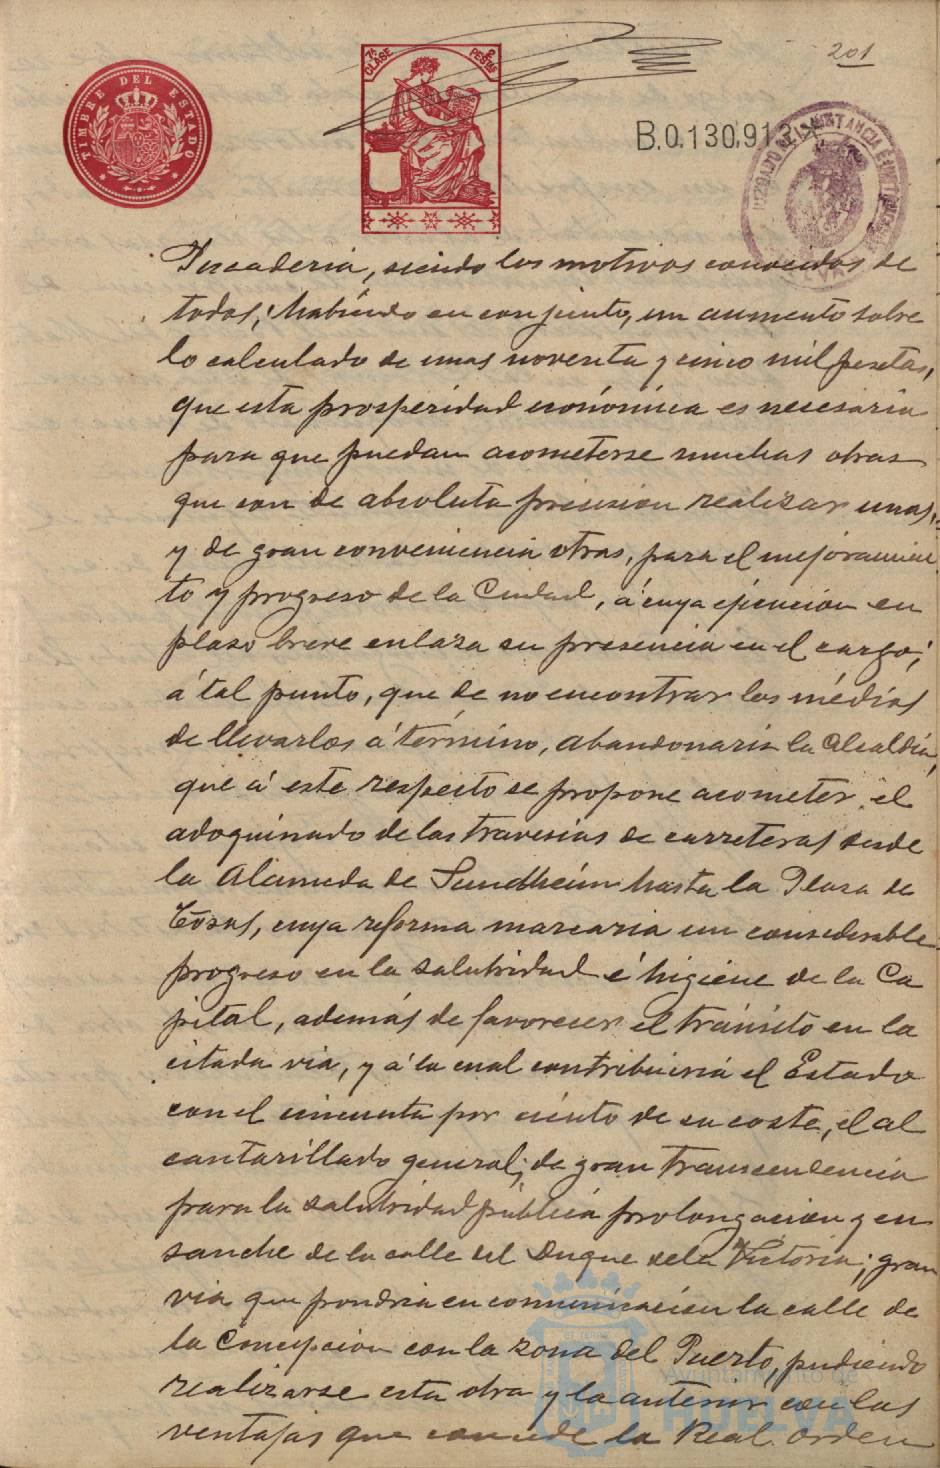 201
7ª CLASE
2 PESETAS
TIMBRE DEL ESTADO
B.0.130.913
JUZGADO DE INSTANCIA E INSTRUCCION
Pescaderia, siendo los motivos conocidos de
todos; habiendo en conjunto, un aumento sobre
lo calculado de unas noventa y cinco mil pesetas,
que esta prosperidad económica es necesaria
para que puedan acometerse muchas obras
que son de absoluta precision realizar unas,
y de gran conveniencia otras, para el mejoramien
to y progreso de la Ciudad, á cuya ejecucion en
plaso breve enlaza su presencia en el cargo;
á tal punto, que de no encontrar los médios
de llevarlos á término, abandonaria la Alcaldía,
que á este respecto se propone acometer el
adoquinado de las travesias de carreteras desde
la Alameda de Sundheim hasta la Plaza de
Toros, cuya reforma marcaria un considerable
progreso en la salubridad é higiene de la Ca
pital, además de favorecer el tránsito en la
citada via, y á la cual contribuiriá el Estado
con el cincuenta por ciento de su coste, el al
cantarillado general; de gran transcendencia
para la salubridad pública prolongacion y en
sanche de la calle del Duque de la Victoria; gran
via que pondria en comunicacion la calle de
la Concepcion con la zona del Puerto, pudiendo
realizarse esta obra y la anterior con las
ventajas que concede la Real orden
Ayuntamiento de
HUELVA